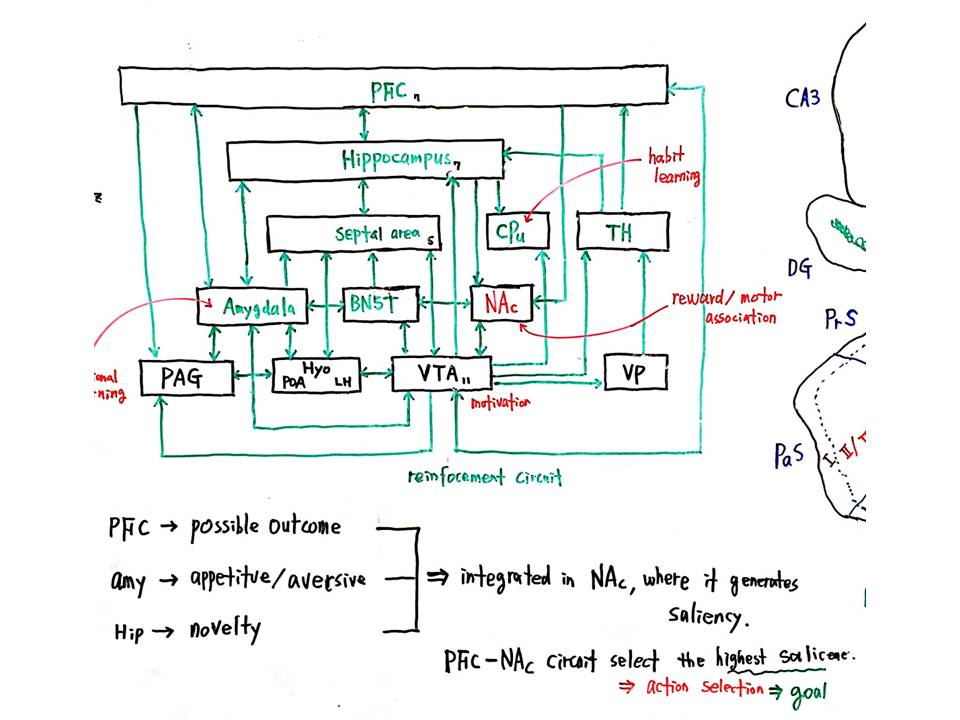 PFC 7
CA3
Hippocampus 7
habit
learning
Septal area 5
CPu
TH
DG
Amygdala
BNST
NAc
reward/motor
association
PrS
PAG
Hyo
POA LH
VTA 11
VP
motivation
PaS
I II/
reinfocement circuit
PFC → possible outcome
amy → appetitve/aversive ⇒ integrated in NAc, where it generates
saliency.
Hip → novelty
PFC-NAc circuit select the highest salicene.
⇒ action selection ⇒ goal